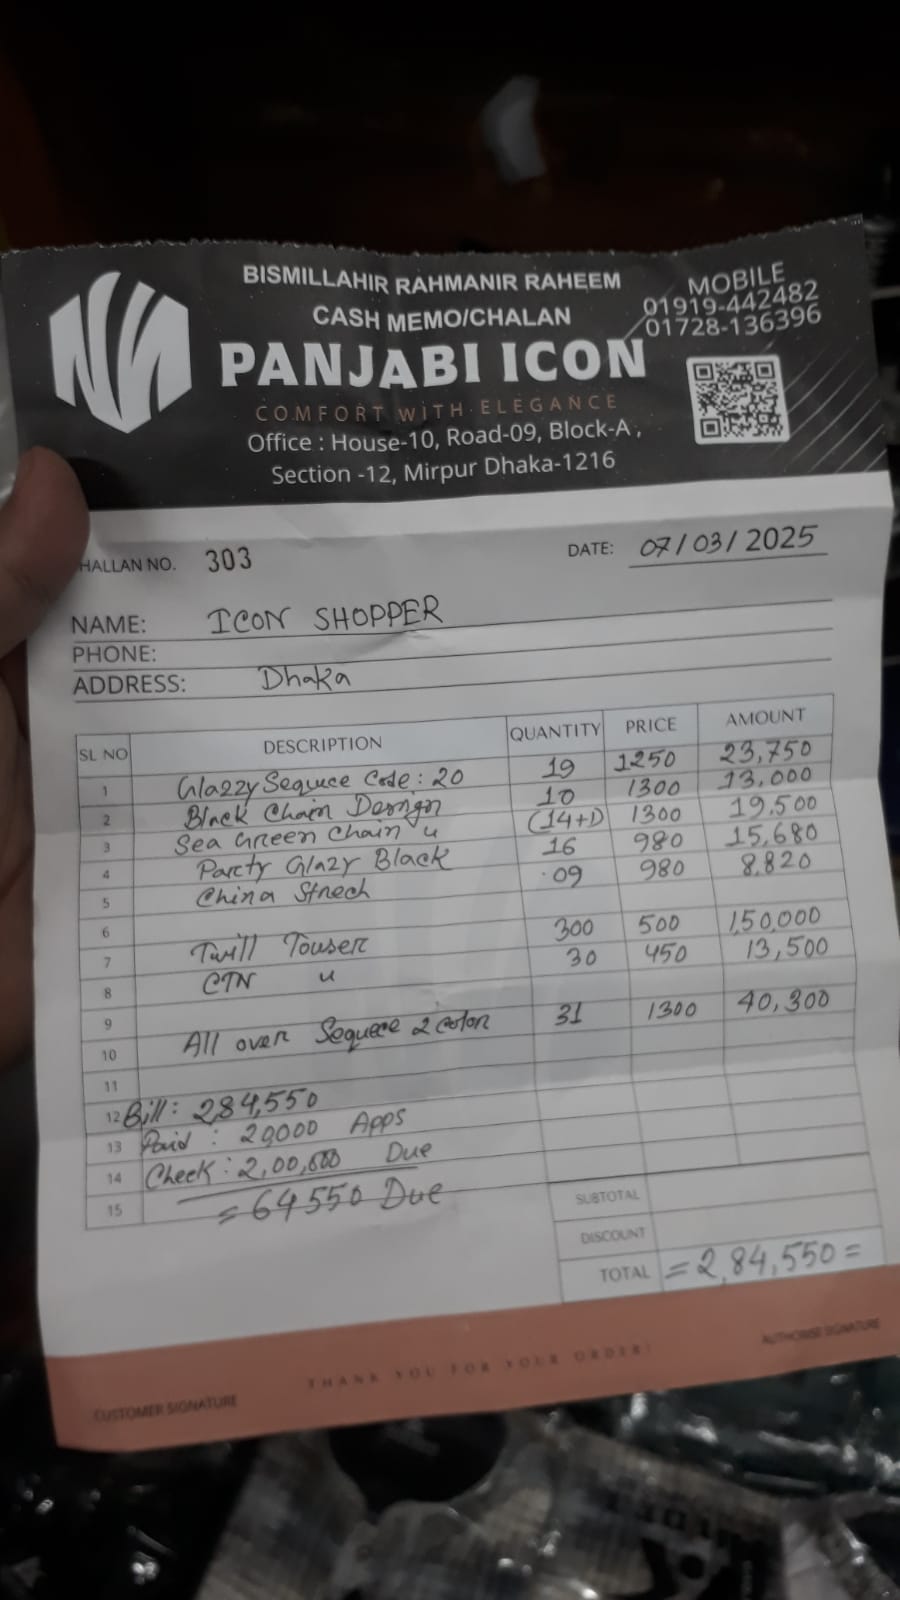 BISMILLAHIR RAHMANIR RAHEEM
CASH MEMO/CHALAN
PANJABI ICON
COMFORT WITH ELEGANCE
Office : House-10, Road-09, Block-A ,
Section -12, Mirpur Dhaka-1216
MOBILE
01919-442482
01728-136396
HALLAN NO. 303
DATE: 07/03/2025
NAME: ICON SHOPPER
PHONE:
ADDRESS: Dhaka
SL NO DESCRIPTION QUANTITY PRICE AMOUNT
1 Glazzy Sequce Code: 20 19 1250 23,750
2 Black Chain Design 10 1300 13,000
3 Sea Green Chain " (14+1) 1300 19,500
4 Party Glazy Black 16 980 15,680
5 China Strech 09 980 8,820
6
7 Twill Touser 300 500 1,50,000
8 CTN " 30 450 13,500
9
10 All over Sequece 2 color 31 1300 40,300
11
12 Bill: 284,550
13 Paid : 20000 Apps
14 Check: 2,00,000 Due
15 = 64550 Due
SUBTOTAL
DISCOUNT
TOTAL =2,84,550=
THANK YOU FOR YOUR ORDER!
CUSTOMER SIGNATURE
AUTHORISE SIGNATURE